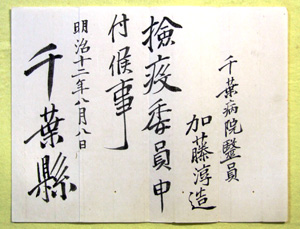 千葉病院醫員
加藤淳造
撿疫委員申
付候事
明治十二年八月八日
千葉縣